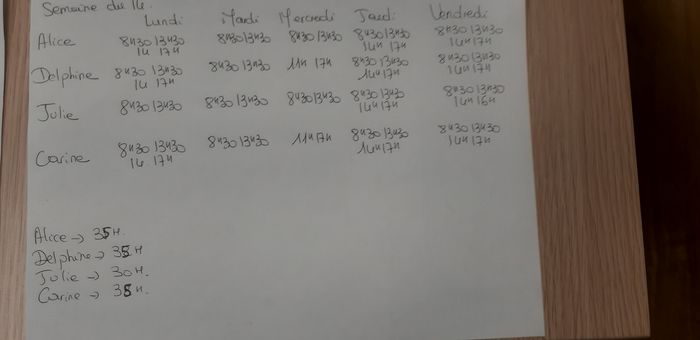 Semaine du 14.
Lundi Mardi Mercredi Jeudi Vendredi
Alice 8H30 13H30 8H30 13H30 8H30 13H30 8H30 13H30 8H30 13H30
14 17H 14H 17H 14H 17H
Delphine 8H30 13H30 8H30 13H30 11H 17H 8H30 13H30 8H30 13H30
14 17H 14H 17H 14H 17H
Julie 8H30 13H30 8H30 13H30 8H30 13H30 8H30 13H30 8H30 13H30
14H 17H 14H 16H
Carine 8H30 13H30 8H30 13H30 11H 17H 8H30 13H30 8H30 13H30
14. 17H 14H 17H 14H 17H
Alice -> 35H.
Delphine -> 35H
Julie -> 30H.
Carine -> 35H.